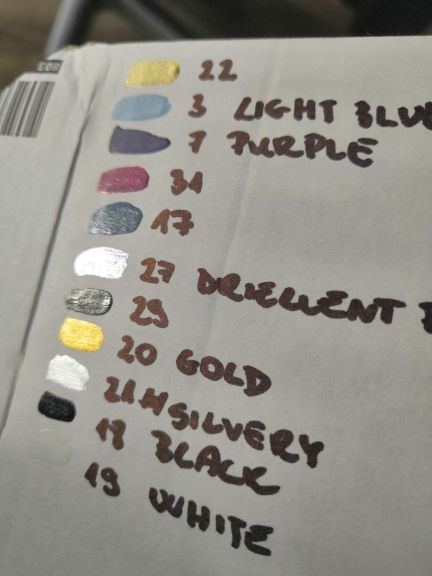 22
3 LIGHT BLUE
7 PURPLE
31
17
27 DRIELLENT
29
20 GOLD
21 H SILVERY
18 BLACK
19 WHITE
803